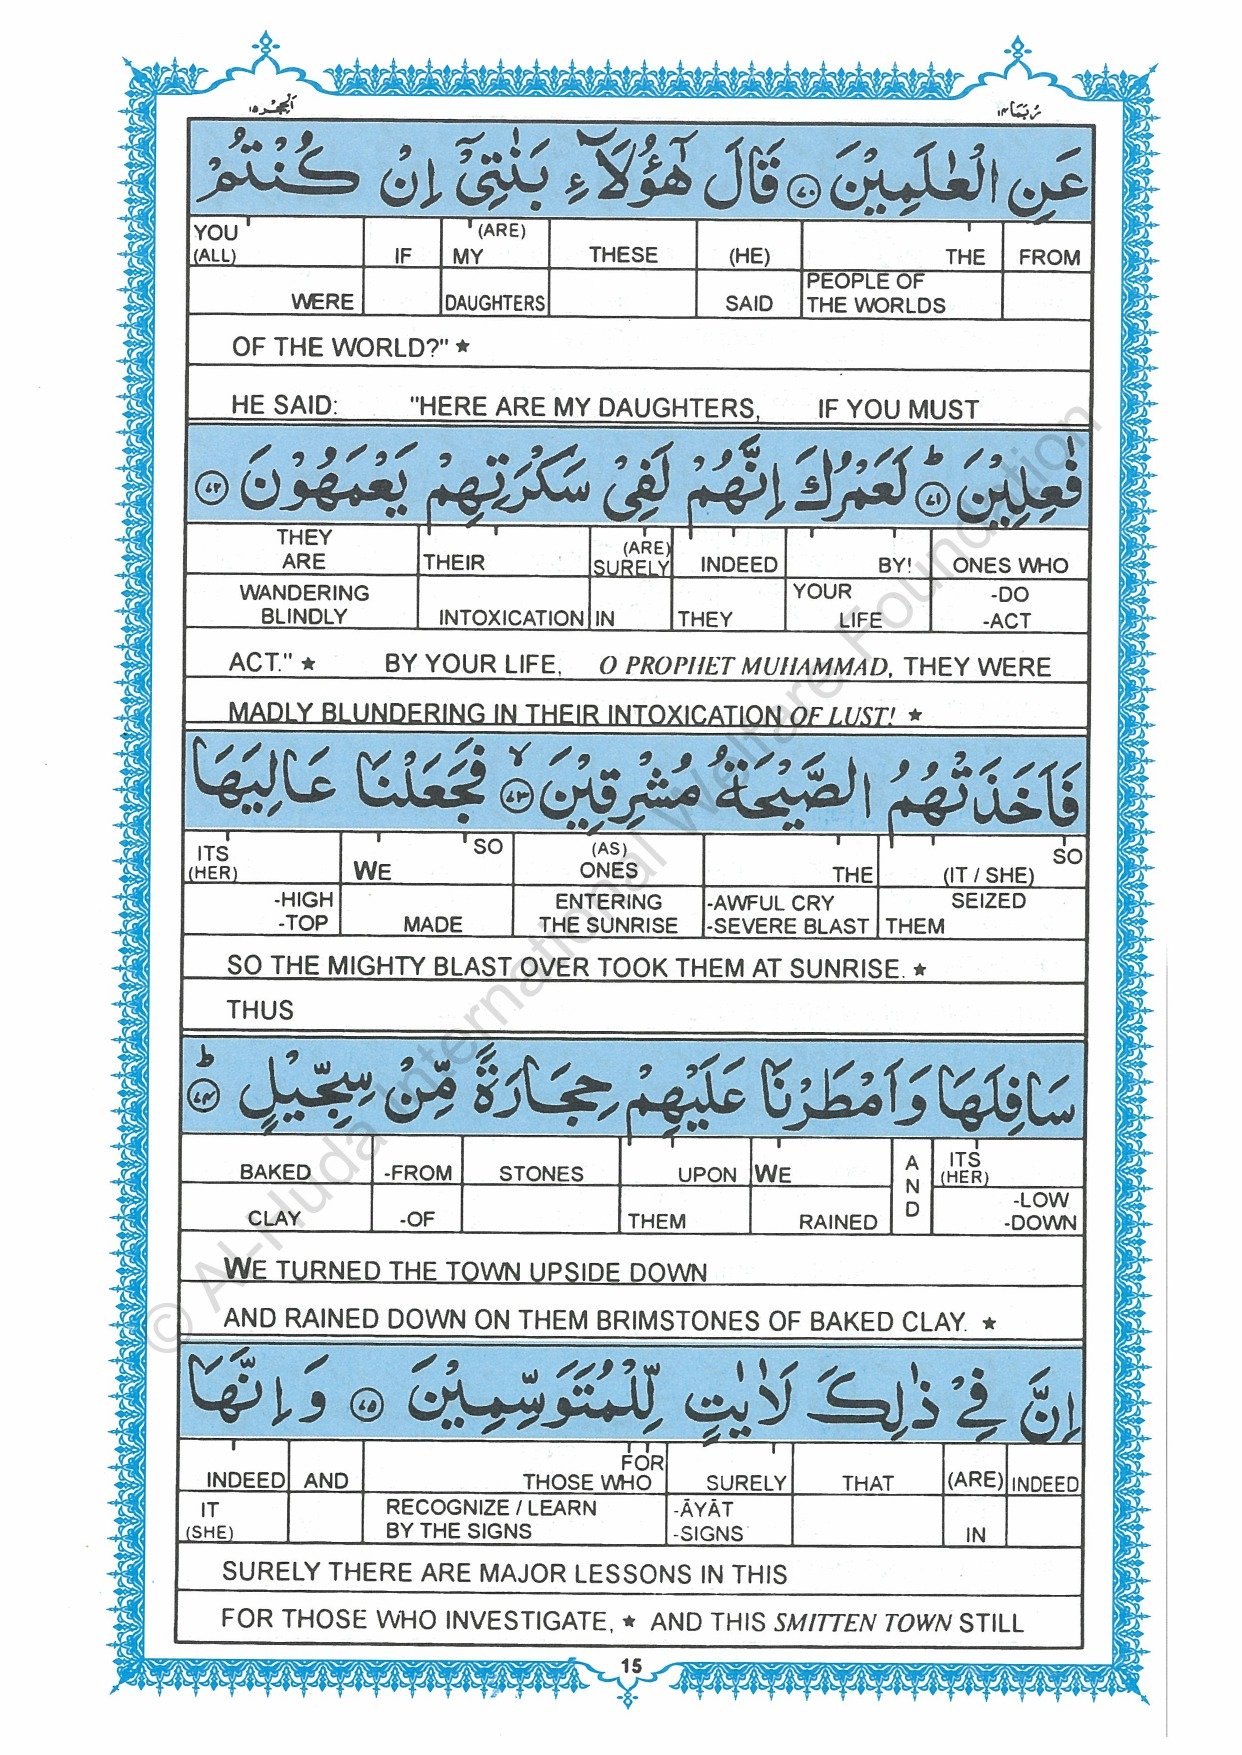 اَلْحِجْر ۱۵ رُبَمَا ۱۴
عَنِ الْعٰلَمِیْنَ ﴿۷۰﴾ قَالَ هٰۤؤُلَآءِ بَنٰتِیْۤ اِنْ كُنْتُمْ
YOU (ARE)
(ALL) IF MY THESE (HE) THE FROM
WERE DAUGHTERS SAID PEOPLE OF
THE WORLDS
OF THE WORLD?" ★
HE SAID: "HERE ARE MY DAUGHTERS, IF YOU MUST
فٰعِلِیْنَ ﴿ؕ۷۱﴾ لَعَمْرُكَ اِنَّهُمْ لَفِیْ سَكْرَتِهِمْ یَعْمَهُوْنَ ﴿۷۲﴾
THEY (ARE)
ARE THEIR SURELY INDEED BY! ONES WHO
WANDERING YOUR -DO
BLINDLY INTOXICATION IN THEY LIFE -ACT
ACT." ★ BY YOUR LIFE, O PROPHET MUHAMMAD, THEY WERE
MADLY BLUNDERING IN THEIR INTOXICATION OF LUST! ★
فَاَخَذَتْهُمُ الصَّیْحَةُ مُشْرِقِیْنَ ﴿ۙ۷۳﴾ فَجَعَلْنَا عَالِیَهَا
ITS SO (AS) SO
(HER) WE ONES THE (IT / SHE)
-HIGH ENTERING -AWFUL CRY SEIZED
-TOP MADE THE SUNRISE -SEVERE BLAST THEM
SO THE MIGHTY BLAST OVER TOOK THEM AT SUNRISE. ★
THUS
سَافِلَهَا وَاَمْطَرْنَا عَلَیْهِمْ حِجَارَةً مِّنْ سِجِّیْلٍ ﴿ؕ۷۴﴾
BAKED -FROM STONES UPON WE AND ITS
(HER)
CLAY -OF THEM RAINED -LOW
-DOWN
WE TURNED THE TOWN UPSIDE DOWN
AND RAINED DOWN ON THEM BRIMSTONES OF BAKED CLAY. ★
اِنَّ فِیْ ذٰلِكَ لَاٰیٰتٍ لِّلْمُتَوَسِّمِیْنَ ﴿۷۵﴾ وَاِنَّهَا
FOR
INDEED AND THOSE WHO SURELY THAT (ARE) INDEED
IT RECOGNIZE / LEARN -ĀYĀT
(SHE) BY THE SIGNS -SIGNS IN
SURELY THERE ARE MAJOR LESSONS IN THIS
FOR THOSE WHO INVESTIGATE, ★ AND THIS SMITTEN TOWN STILL
15
© Al-Huda International Welfare Foundation